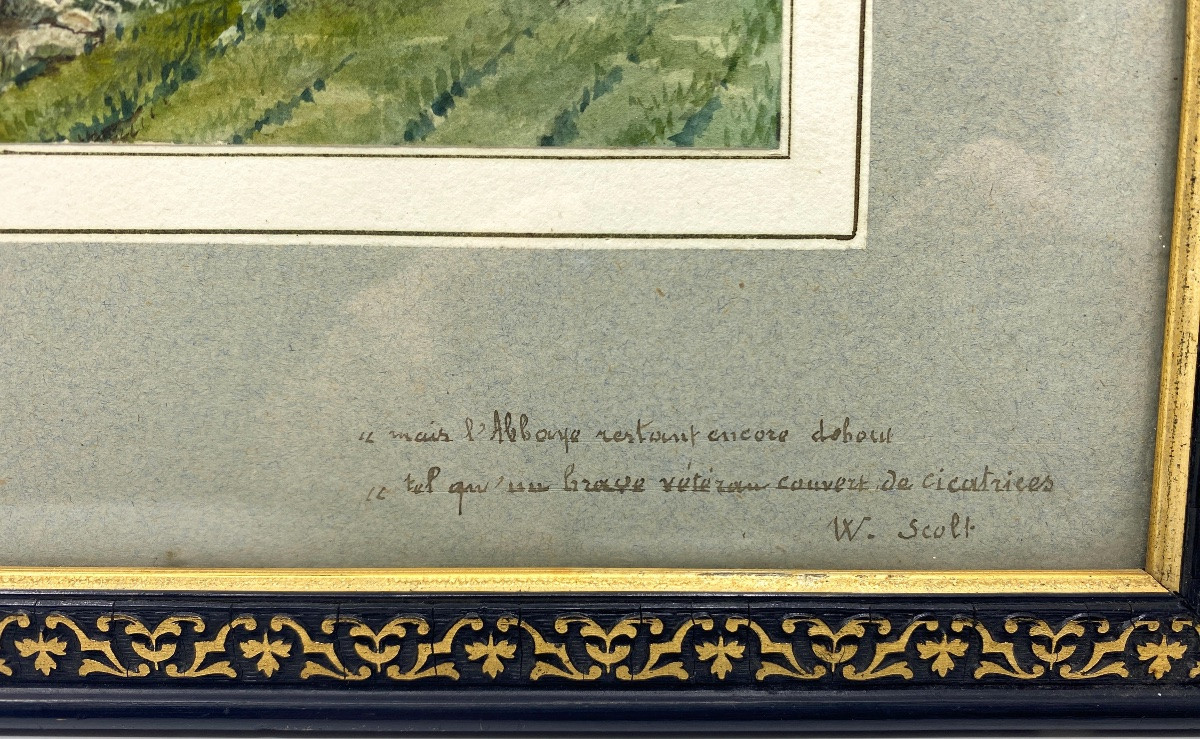 „ mais l'Abbaye restant encore debout
„ tel qu'un brave vétéran couvert de cicatrices
W. Scott